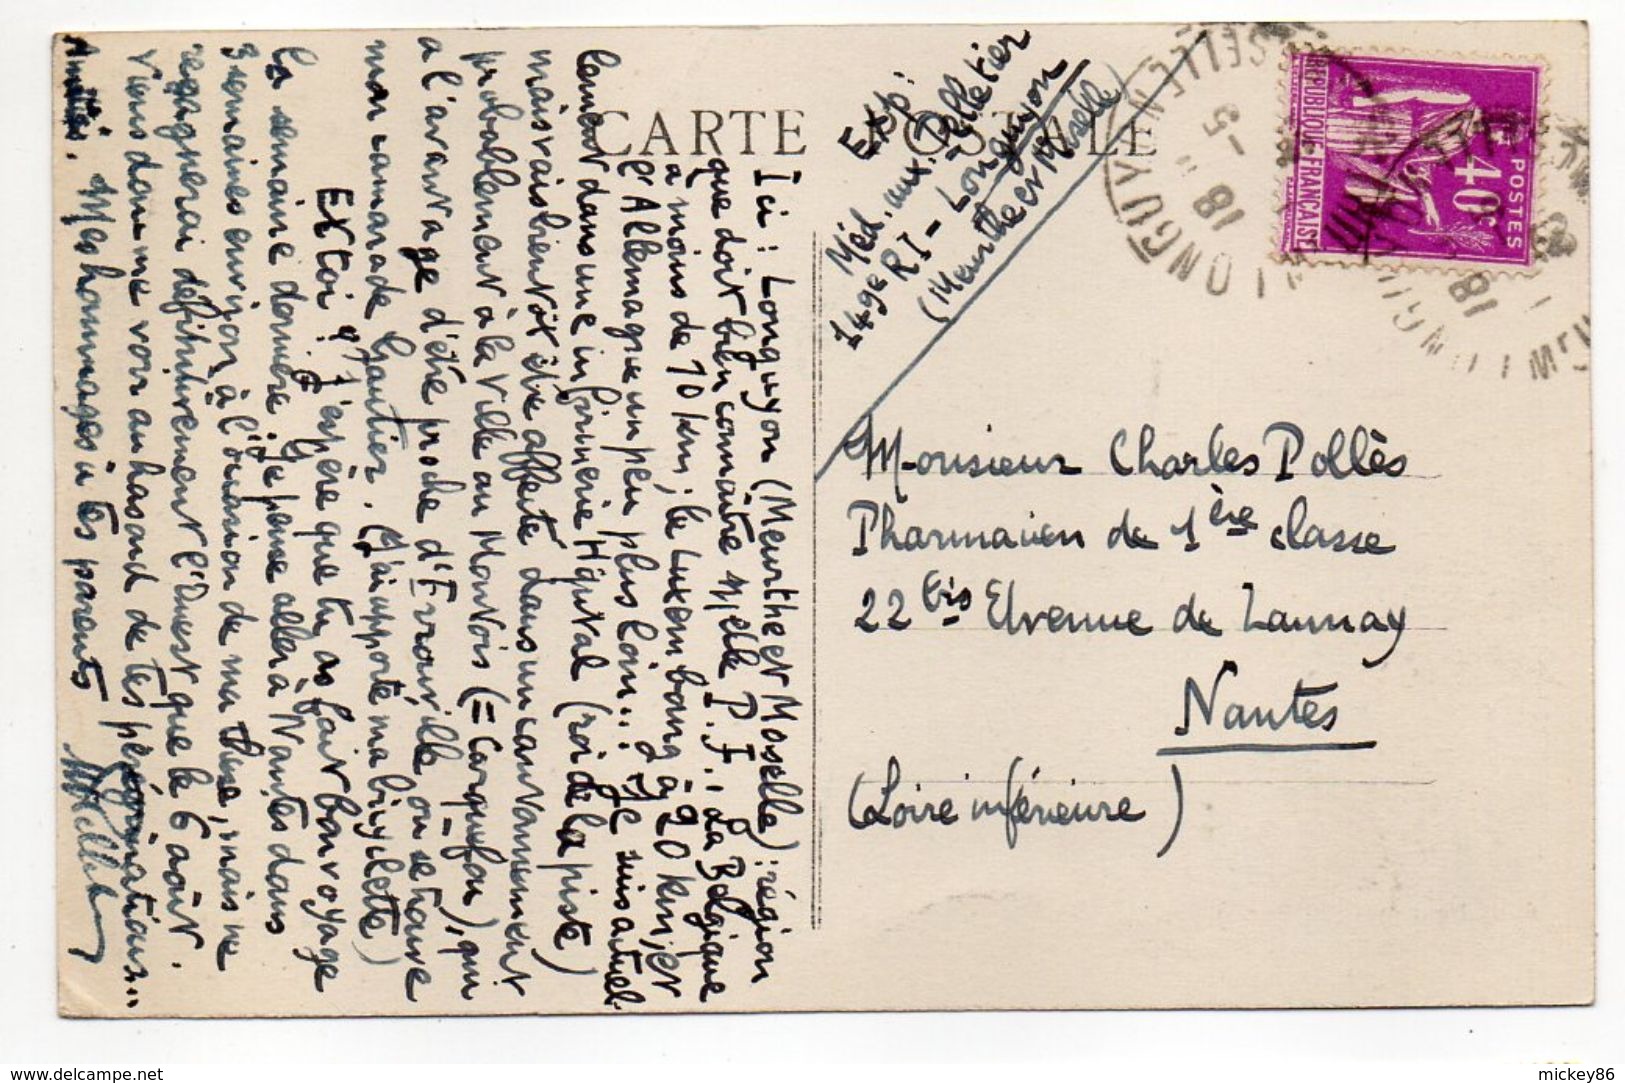 CARTE POSTALE
Exp:
Méd. aux. Pelletier
149e RI - Longuyon
(Meurthe et Moselle)
RÉPUBLIQUE FRANÇAISE
POSTES
40c
LONGUYON
18 -5
Monsieur Charles Pollès
Pharmacien de 1ère classe
22 bis Avenue de Launay
Nantes
(Loire inférieure)
Ici : Longuyon (Meurthe et Moselle) : région
que doit bien connaître Melle P.J... La Belgique
à moins de 10 km ; le Luxembourg à 20 km, et
l'Allemagne un peu plus loin... Je suis actuel-
lement dans une infirmerie Hôpital (roi de la piste)
mais vais bientôt être affecté dans un cantonnement
probablement à la ville au Montois (= Carquefou), qui
a l'avantage d'être près d'Errouville, où se trouve
mon camarade Gautier. (J'ai apporté ma bicyclette)
Et toi ? J'espère que tu as fait bon voyage
la semaine dernière. Je pense aller à Nantes dans
3 semaines environ à l'occasion de ma thèse, mais ne
regagnerai définitivement l'Ouest que le 6 août.
Viens donc me voir au hasard de tes pérégrinations...
Amitiés. Mes hommages à tes parents
mickey86
www.delcampe.net